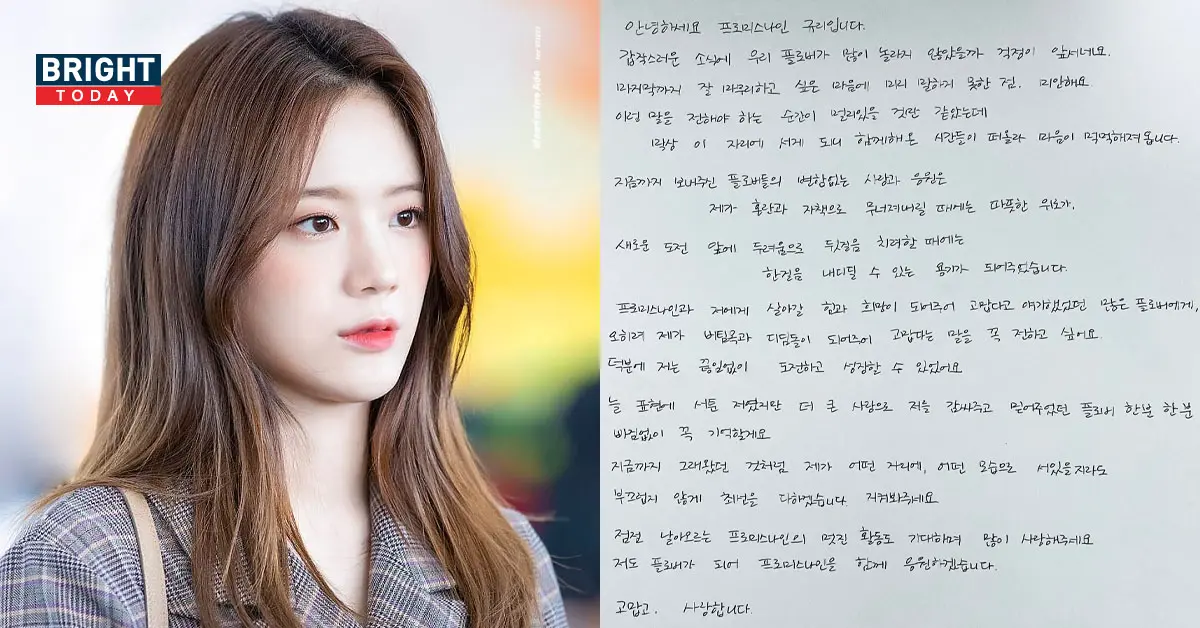 BRIGHT
TODAY
안녕하세요 프로미스나인 규리입니다.
갑작스러운 소식에 우리 플로버가 많이 놀라지 않았을까 걱정이 앞서네요.
마지막까지 잘 마무리하고 싶은 마음에 미리 말하지 못한 점. 미안해요
이런 말을 전해야 하는 순간이 멀리있을 것만 같았는데
막상 이 자리에 서게 되니 함께해온 시간들이 떠올라 마음이 먹먹해져옵니다.
지금까지 보내주신 플로버들의 변함없는 사랑과 응원은
제가 혼란과 자책으로 무너져버릴 때에는 따뜻한 위로가,
새로운 도전 앞에 두려움으로 뒷걸음 치려할 때에는
한걸음 내디딜 수 있는 용기가 되어주었습니다.
프로미스나인과 저에게 살아갈 힘과 희망이 되어주어 고맙다고 얘기했었던 많은 플로버에게,
오히려 제가 버팀목과 디딤돌이 되어주어 고맙다는 말을 꼭 전하고 싶어요.
덕분에 저는 끊임없이 도전하고 성장할 수 있었어요
늘 표현에 서툰 저였지만 더 큰 사랑으로 저를 감싸주고 믿어주었던 플로버 한분 한분
빠짐없이 꼭 기억할게요
지금까지 그래왔던 것처럼 제가 어떤 자리에, 어떤 모습으로 서있을지라도
부끄럽지 않게 최선을 다하겠습니다. 지켜봐주세요
점점 날아오르는 프로미스나인의 멋진 활동도 기대하며 많이 사랑해주세요
저도 플로버가 되어 프로미스나인을 함께 응원하겠습니다.
고맙고. 사랑합니다.